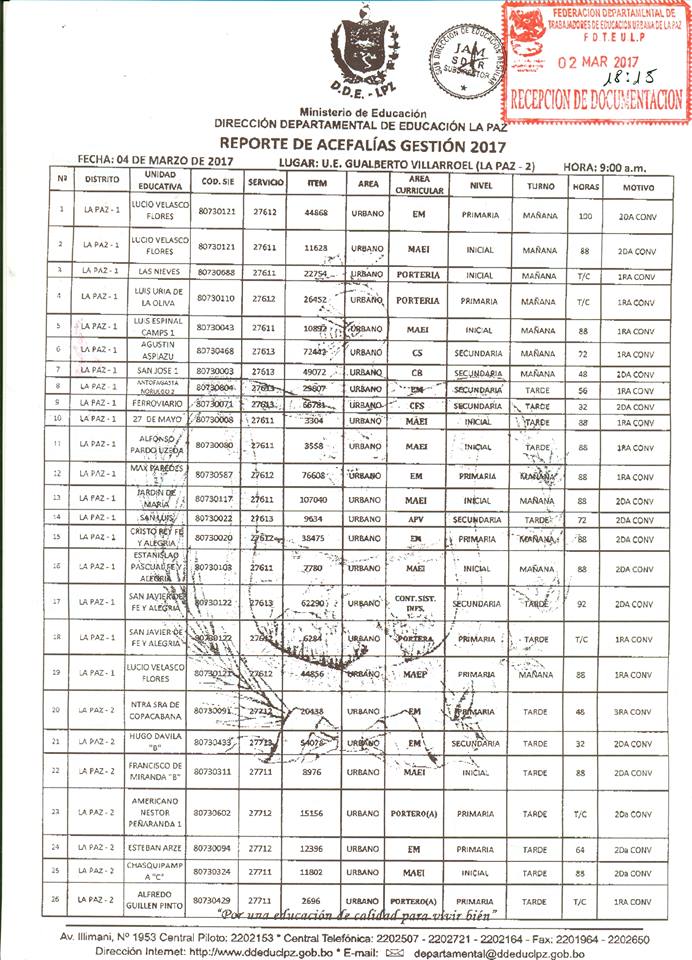 FEDERACIÓN DEPARTAMENTAL DE
TRABAJADORES DE EDUCACIÓN URBANA DE LA PAZ
F D T E U L P
02 MAR 2017
18:15
RECEPCION DE DOCUMENTACION
SUB DIRECCION DE EDUCACION REGULAR
JAM
SDER
SUBDIRECTOR
D.D.E. - LPZ
Ministerio de Educación
DIRECCIÓN DEPARTAMENTAL DE EDUCACIÓN LA PAZ
REPORTE DE ACEFALÍAS GESTIÓN 2017
FECHA: 04 DE MARZO DE 2017 LUGAR: U.E. GUALBERTO VILLARROEL (LA PAZ - 2) HORA: 9:00 a.m.
Nº DISTRITO UNIDAD EDUCATIVA COD. SIE SERVICIO ITEM AREA AREA CURRICULAR NIVEL TURNO HORAS MOTIVO
1 LA PAZ - 1 LUCIO VELASCO FLORES 80730121 27612 44868 URBANO EM PRIMARIA MAÑANA 100 2DA CONV
2 LA PAZ - 1 LUCIO VELASCO FLORES 80730121 27611 11628 URBANO MAEI INICIAL MAÑANA 88 2DA CONV
3 LA PAZ - 1 LAS NIEVES 80730688 27611 22754 URBANO PORTERIA INICIAL MAÑANA T/C 1RA CONV
4 LA PAZ - 1 LUIS URIA DE LA OLIVA 80730110 27612 26452 URBANO PORTERIA PRIMARIA MAÑANA T/C 1RA CONV
5 LA PAZ - 1 LUIS ESPINAL CAMPS 1 80730043 27611 10892 URBANO MAEI INICIAL MAÑANA 88 1RA CONV
6 LA PAZ - 1 AGUSTIN ASPIAZU 80730468 27613 72442 URBANO CS SECUNDARIA MAÑANA 72 1RA CONV
7 LA PAZ - 1 SAN JOSE 1 80730003 27613 49072 URBANO CB SECUNDARIA MAÑANA 48 2DA CONV
8 LA PAZ - 1 ANTOFAGASTA 2 80730804 27613 URBANO EM SECUNDARIA TARDE 56 1RA CONV
9 LA PAZ - 1 FERROVIARIO 80730071 27613 66781 URBANO CFS SECUNDARIA TARDE 32 2DA CONV
10 LA PAZ - 1 27 DE MAYO 80730008 27611 3304 URBANO MAEI INICIAL TARDE 88 1RA CONV
11 LA PAZ - 1 ALFONSO PARDO UZEDA 80730080 27611 3558 URBANO MAEI INICIAL TARDE 88 1RA CONV
12 LA PAZ - 1 MAX PAREDES 80730587 27612 76608 URBANO EM PRIMARIA MAÑANA 88 1RA CONV
13 LA PAZ - 1 JARDIN DE MARIA 80730117 27611 107040 URBANO MAEI INICIAL MAÑANA 88 2DA CONV
14 LA PAZ - 1 SAN LUIS 80730022 27613 9634 URBANO APV SECUNDARIA TARDE 72 2DA CONV
15 LA PAZ - 1 CRISTO REY FE Y ALEGRIA 80730020 27612 38475 URBANO EM PRIMARIA MAÑANA 88 2DA CONV
16 LA PAZ - 1 ESTANISLAO PASCUAL FE Y ALEGRIA 80730103 27611 7780 URBANO MAEI INICIAL MAÑANA 88 2DA CONV
17 LA PAZ - 1 SAN JAVIER DE FE Y ALEGRIA 80730122 27613 62290 URBANO CONT. SIST. INFS. SECUNDARIA TARDE 92 2DA CONV
18 LA PAZ - 1 SAN JAVIER DE FE Y ALEGRIA 80730122 27612 6284 URBANO PORTERA PRIMARIA TARDE T/C 1RA CONV
19 LA PAZ - 1 LUCIO VELASCO FLORES 80730121 27612 44856 URBANO MAEP PRIMARIA MAÑANA 88 1RA CONV
20 LA PAZ - 2 NTRA SRA DE COPACABANA 80730091 27712 20438 URBANO EM PRIMARIA TARDE 48 3RA CONV
21 LA PAZ - 2 HUGO DAVILA "B" 80730433 27713 54078 URBANO EM SECUNDARIA TARDE 32 2DA CONV
22 LA PAZ - 2 FRANCISCO DE MIRANDA "B" 80730311 27711 8976 URBANO MAEI INICIAL TARDE 88 2DA CONV
23 LA PAZ - 2 AMERICANO NESTOR PEÑARANDA 1 80730602 27712 15156 URBANO PORTERO(A) PRIMARIA TARDE T/C 2Da CONV
24 LA PAZ - 2 ESTEBAN ARZE 80730094 27712 12396 URBANO EM PRIMARIA TARDE 64 2Da CONV
25 LA PAZ - 2 CHASQUIPAMPA "C" 80730324 27711 11802 URBANO MAEI INICIAL TARDE 88 2Da CONV
26 LA PAZ - 2 ALFREDO GUILLEN PINTO 80730429 27711 2696 URBANO PORTERO(A) PRIMARIA TARDE T/C 1RA CONV
"Por una educación de calidad para vivir bién"
Av. Illimani, Nº 1953 Central Piloto: 2202153 * Central Telefónica: 2202507 - 2202721 - 2202164 - Fax: 2201964 - 2202650
Dirección Internet: http://www.ddeduclpz.gob.bo * E-mail: departamental@ddeduclpz.gob.bo